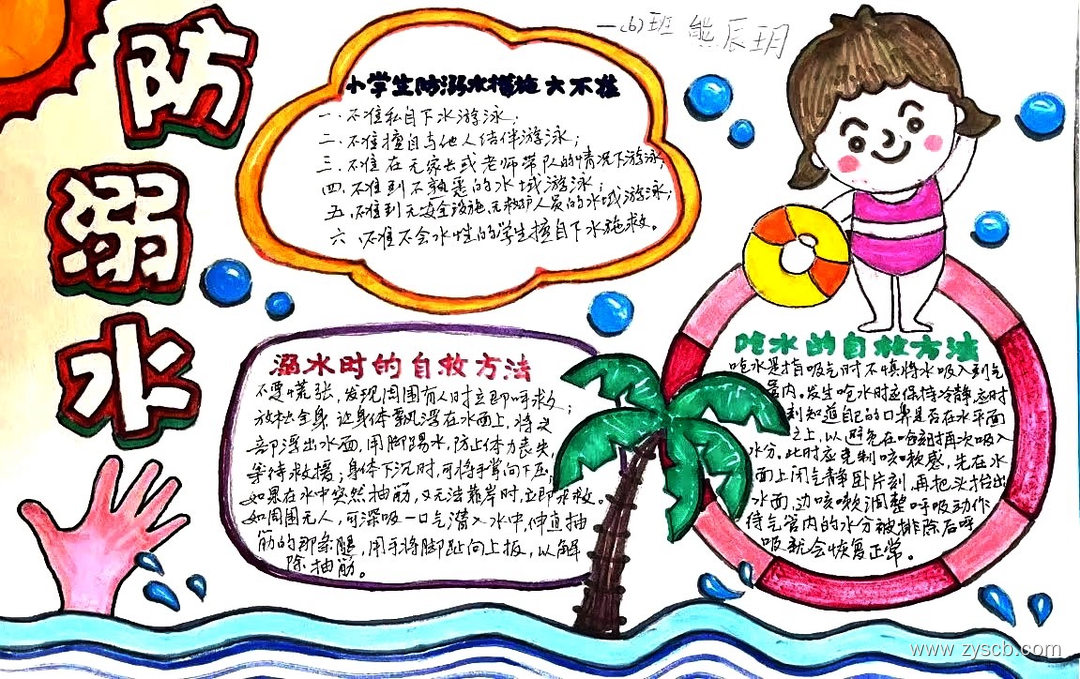 防
溺
水
一(6)班 熊辰玥
小学生防溺水措施六不准
一、不准私自下水游泳;
二、不准擅自与他人结伴游泳;
三、不准在无家长或老师带队的情况下游泳
四、不准到不熟悉的水域游泳;
五、不准到无安全设施、无救护人员的水域游泳;
六、不准不会水性的学生擅自下水施救。
溺水时的自救方法
不要慌张,发现周围有人时立即呼救;
放松全身,让身体飘浮在水面上,将头
部浮出水面,用脚踢水,防止体力丧失,
等待救援;身体下沉时,可将手掌向下压;
如果在水中突然抽筋,又无法靠岸时,立即求救。
如周围无人,可深吸一口气潜入水中,伸直抽
筋的那条腿,用手将脚趾向上扳,以解
除抽筋。
呛水的自救方法
呛水是指吸气时不慎将水吸入到气
管内。发生呛水时应保持冷静,及时
判知道自己的口鼻是否在水平面
之上,以避免在呛咳时再次吸入
水分。此时应克制咳嗽感,先在水
面上闭气静卧片刻,再把头抬出
水面,边咳嗽,调整呼吸动作
待气管内的水分被排除后呼
吸就会恢复正常。
www.zyscb.com